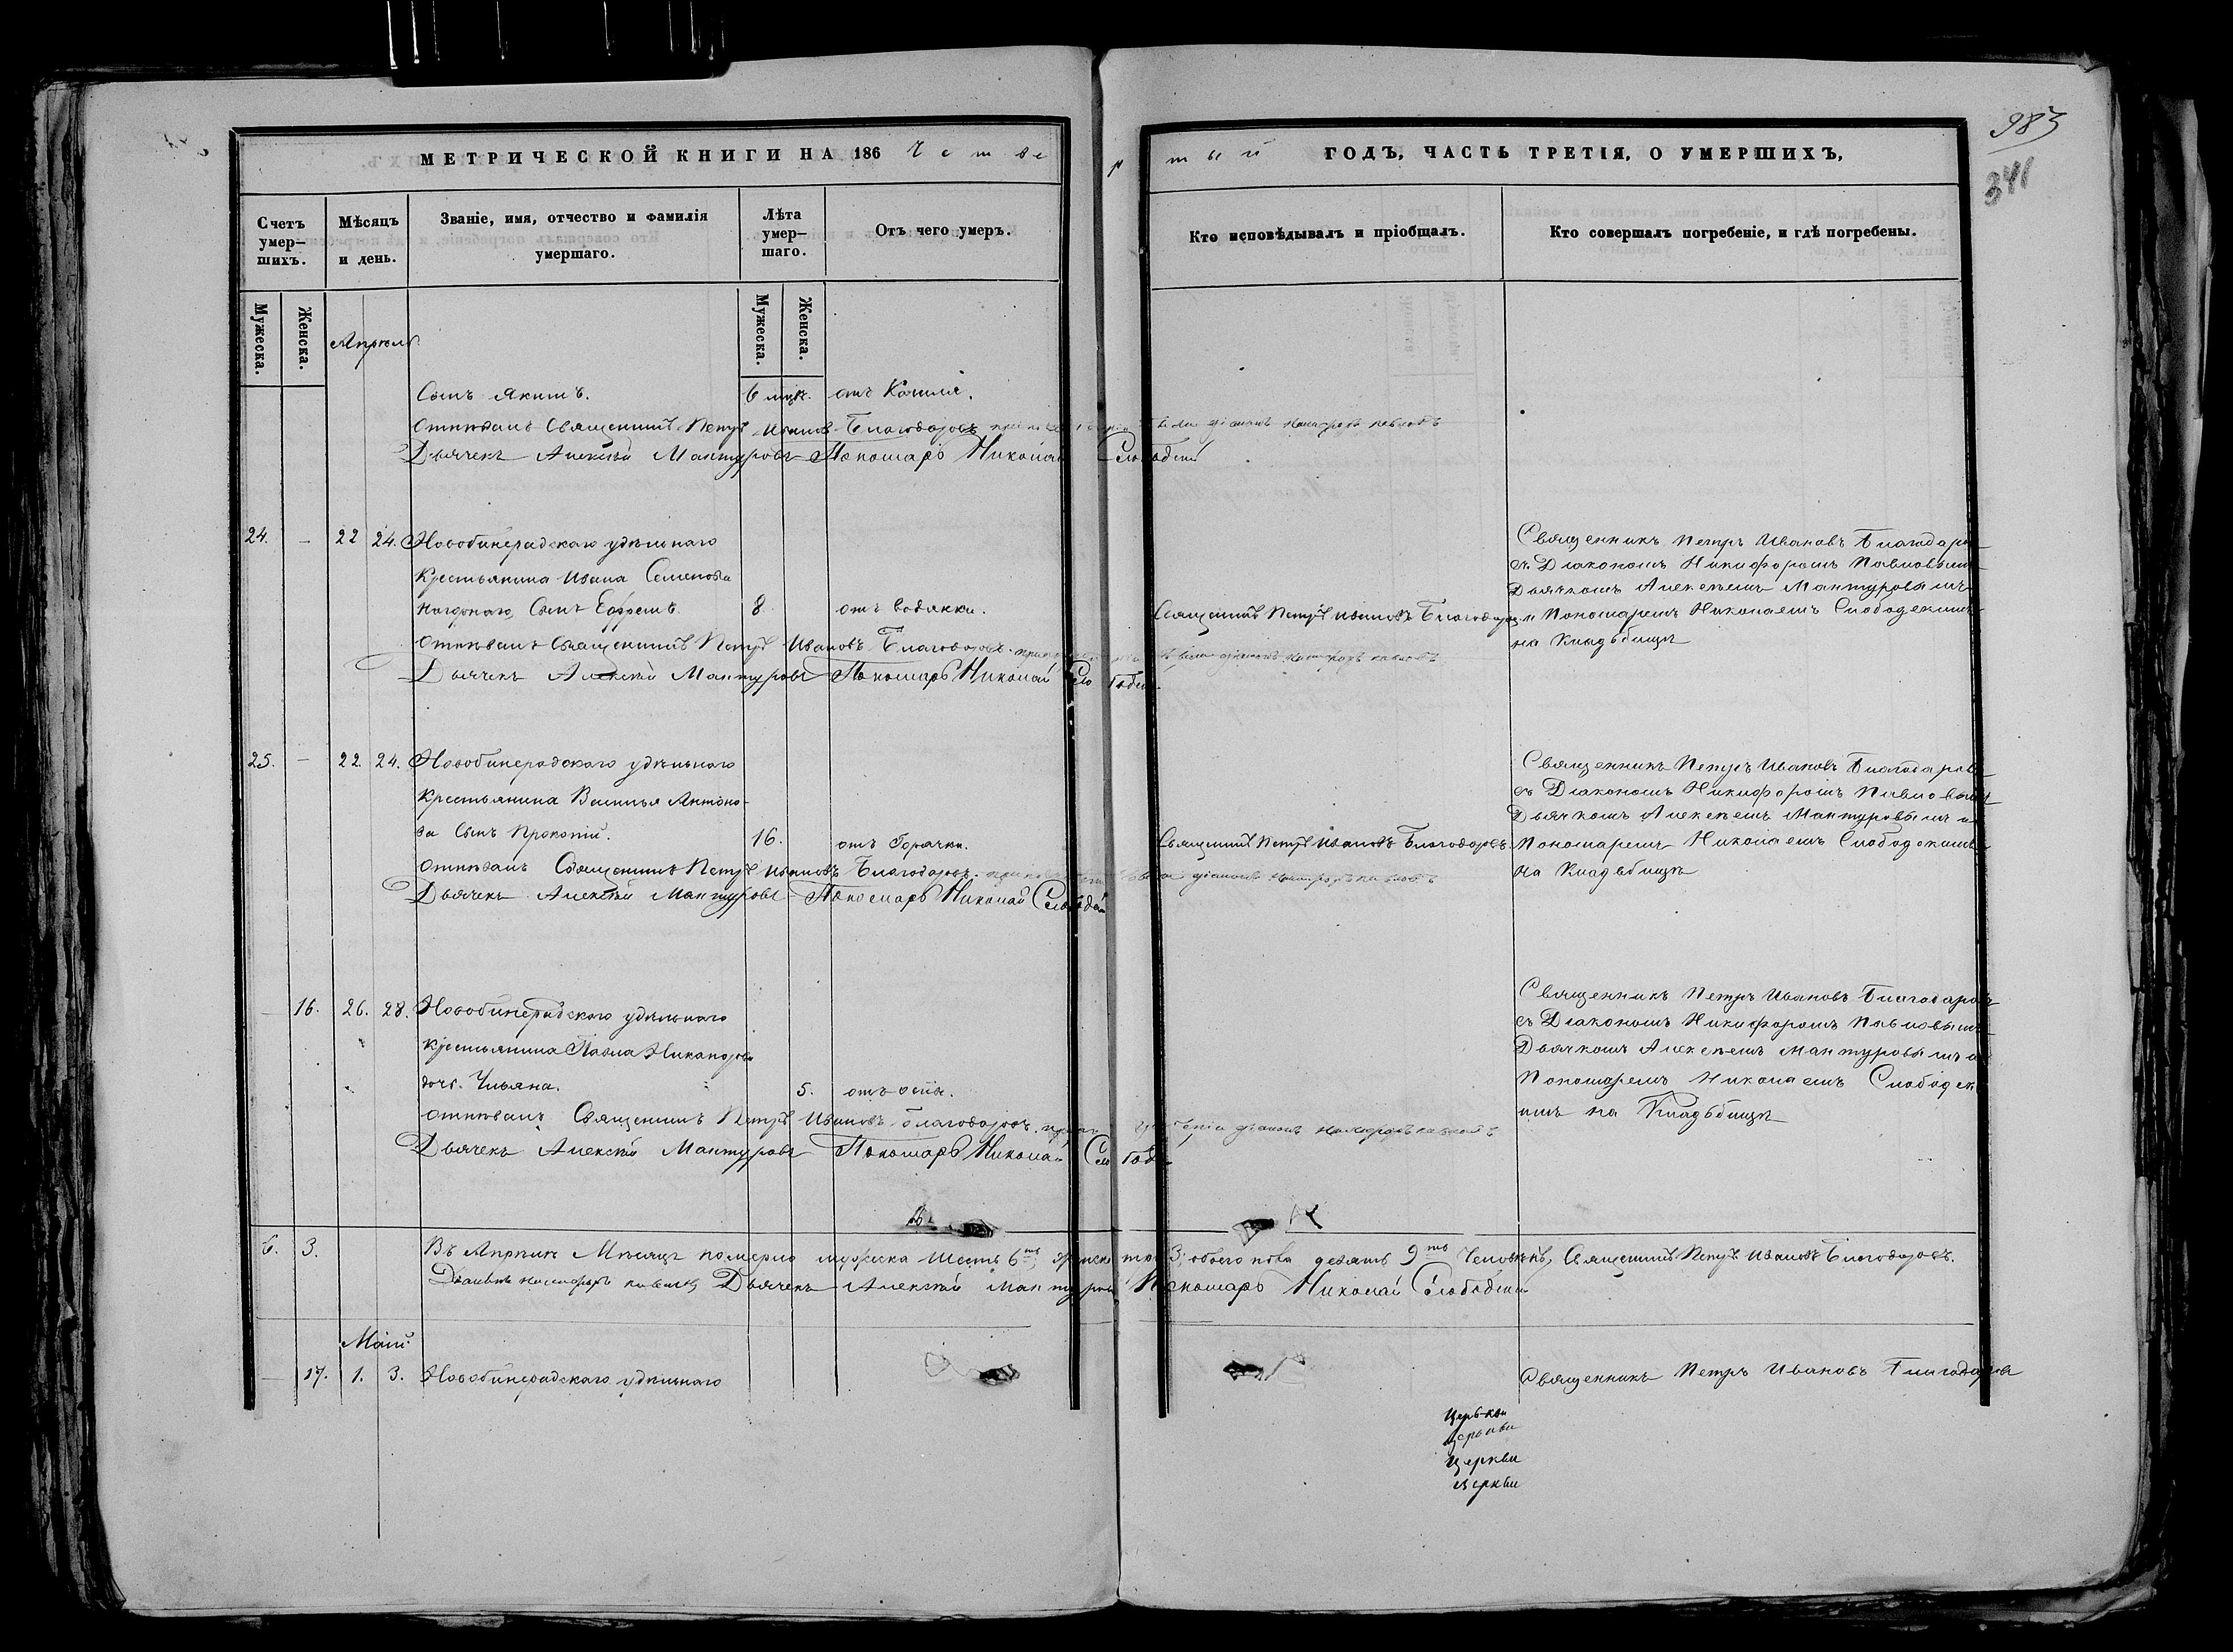 983
341
МЕТРИЧЕСКОЙ КНИГИ НА 186 Четвертый ГОДЪ, ЧАСТЬ ТРЕТІЯ, О УМЕРШИХЪ,
Счетъ умер-шихъ.
Мѣсяцъ и день.
Званіе, имя, отчество и фамилія умершаго.
Лѣта умер-шаго.
Отъ чего умеръ.
Кто исповѣдывалъ и пріобщалъ.
Кто совершалъ погребеніе, и гдѣ погребены.
Мужеска.
Женска.
Мужеска.
Женска.
Апрѣль
Сынъ Якимъ. 6 мцъ. отъ Кашля.
Отпѣвалъ Священникъ Петръ Ивановъ Благодаровъ
Дьячекъ Алексѣй Мантуровъ Пономарь Николай
24. – 22 24. Новобинарадскаго удѣльнаго
крестьянина Ивана Семенова
Сынъ Ефремъ. 8. отъ водянки.
Священникъ Петръ Ивановъ Благодаровъ
Отпѣвалъ Священникъ Петръ Ивановъ Благодаровъ.
Дьячекъ Алексѣй Мантуровъ Пономарь Николай
Священникъ Петръ Ивановъ Благодаровъ
съ Діакономъ Никифоромъ Павловымъ
Дьячкомъ Алексѣемъ Мантуровымъ
и Пономаремъ Николаемъ
на Кладьбищѣ
25. – 22. 24. Новобинарадскаго удѣльнаго
крестьянина Василья Антоно-
ва Сынъ Прокопій. 16. отъ Горячки.
Священникъ Петръ Ивановъ Благодаровъ.
Отпѣвалъ Священникъ Петръ Ивановъ Благодаровъ.
Дьячекъ Алексѣй Мантуровъ Пономарь Николай
Священникъ Петръ Ивановъ Благодаровъ
съ Діакономъ Никифоромъ Павловымъ
Дьячкомъ Алексѣемъ Мантуровымъ и
Пономаремъ Николаемъ
на Кладьбищѣ
– 16. 26. 28. Новобинарадскаго удѣльнаго
крестьянина Павла Никанорова
дочь Ульяна. 5. отъ оспы.
Отпѣвалъ Священникъ Петръ Ивановъ Благодаровъ.
Дьячекъ Алексѣй Мантуровъ Пономарь Николай
Священникъ Петръ Ивановъ Благодаровъ
съ Діакономъ Никифоромъ Павловымъ
Дьячкомъ Алексѣемъ Мантуровымъ и
Пономаремъ Николаемъ
на Кладьбищѣ
6. 3. Въ Апрѣлѣ Мѣсяцѣ померло мужеска Шесть 6ть, женска три 3, обоего пола девять 9ть Человѣкъ, Священникъ Петръ Ивановъ Благодаровъ.
Діаконъ Никифоръ Павловъ Дьячекъ Алексѣй Мантуровъ Пономарь Николай
Маій
– 17. 1. 3. Новобинарадскаго удѣльнаго
Священникъ Петръ Ивановъ Благодаровъ
Церькви
Церькви
Церкви
Церкви